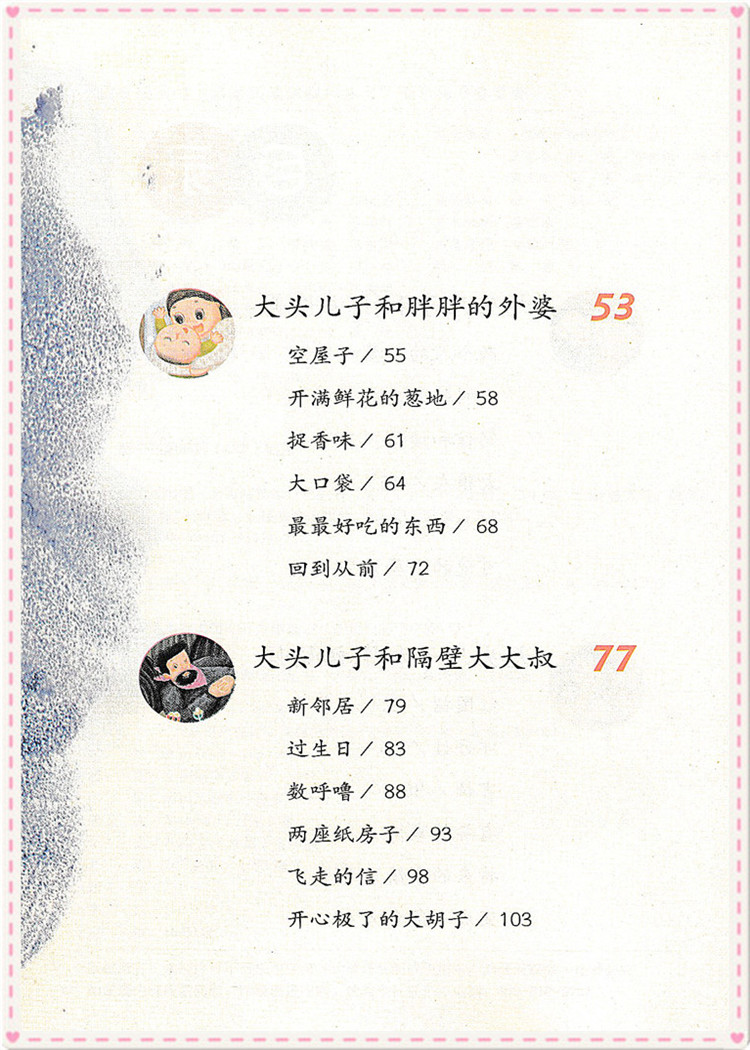 大头儿子和胖胖的外婆 53
空屋子 / 55
开满鲜花的葱地 / 58
捉香味 / 61
大口袋 / 64
最最好吃的东西 / 68
回到从前 / 72
大头儿子和隔壁大大叔 77
新邻居 / 79
过生日 / 83
数呼噜 / 88
两座纸房子 / 93
飞走的信 / 98
开心极了的大胡子 / 103